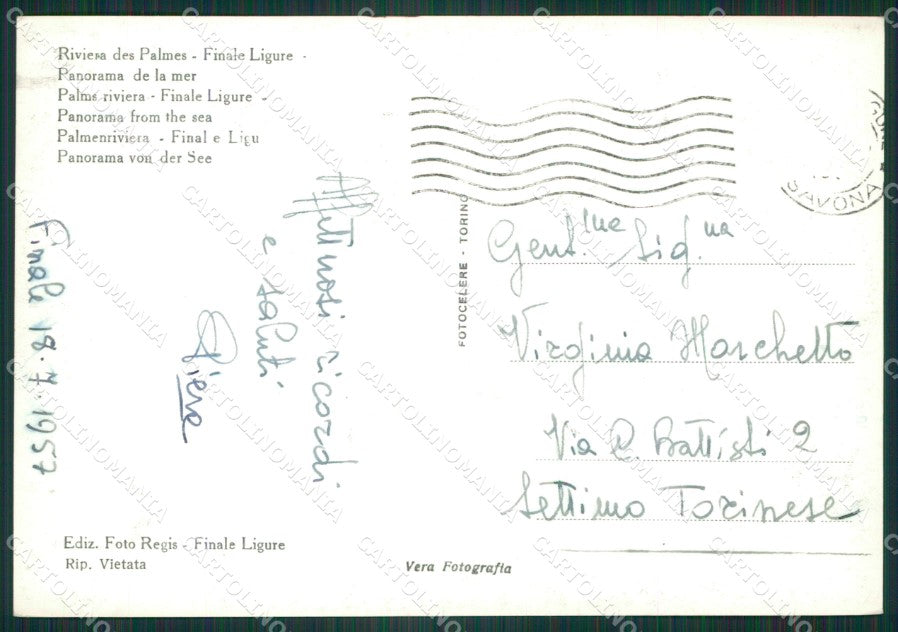 Riviera des Palmes - Finale Ligure -
Panorama de la mer
Palms riviera - Finale Ligure -
Panorama from the sea
Palmenriviera - Final e Ligu
Panorama von der See
Finale 18.7.1957
Affettuosi ricordi
e saluti
Piera
FOTOCELERE - TORINO
SAVONA
Gent.ma Sig.na
Virginia Marchetto
Via C. Battisti 2
Settimo Torinese
Ediz. Foto Regis - Finale Ligure
Rip. Vietata
Vera Fotografia
CARTOLINOMANIA